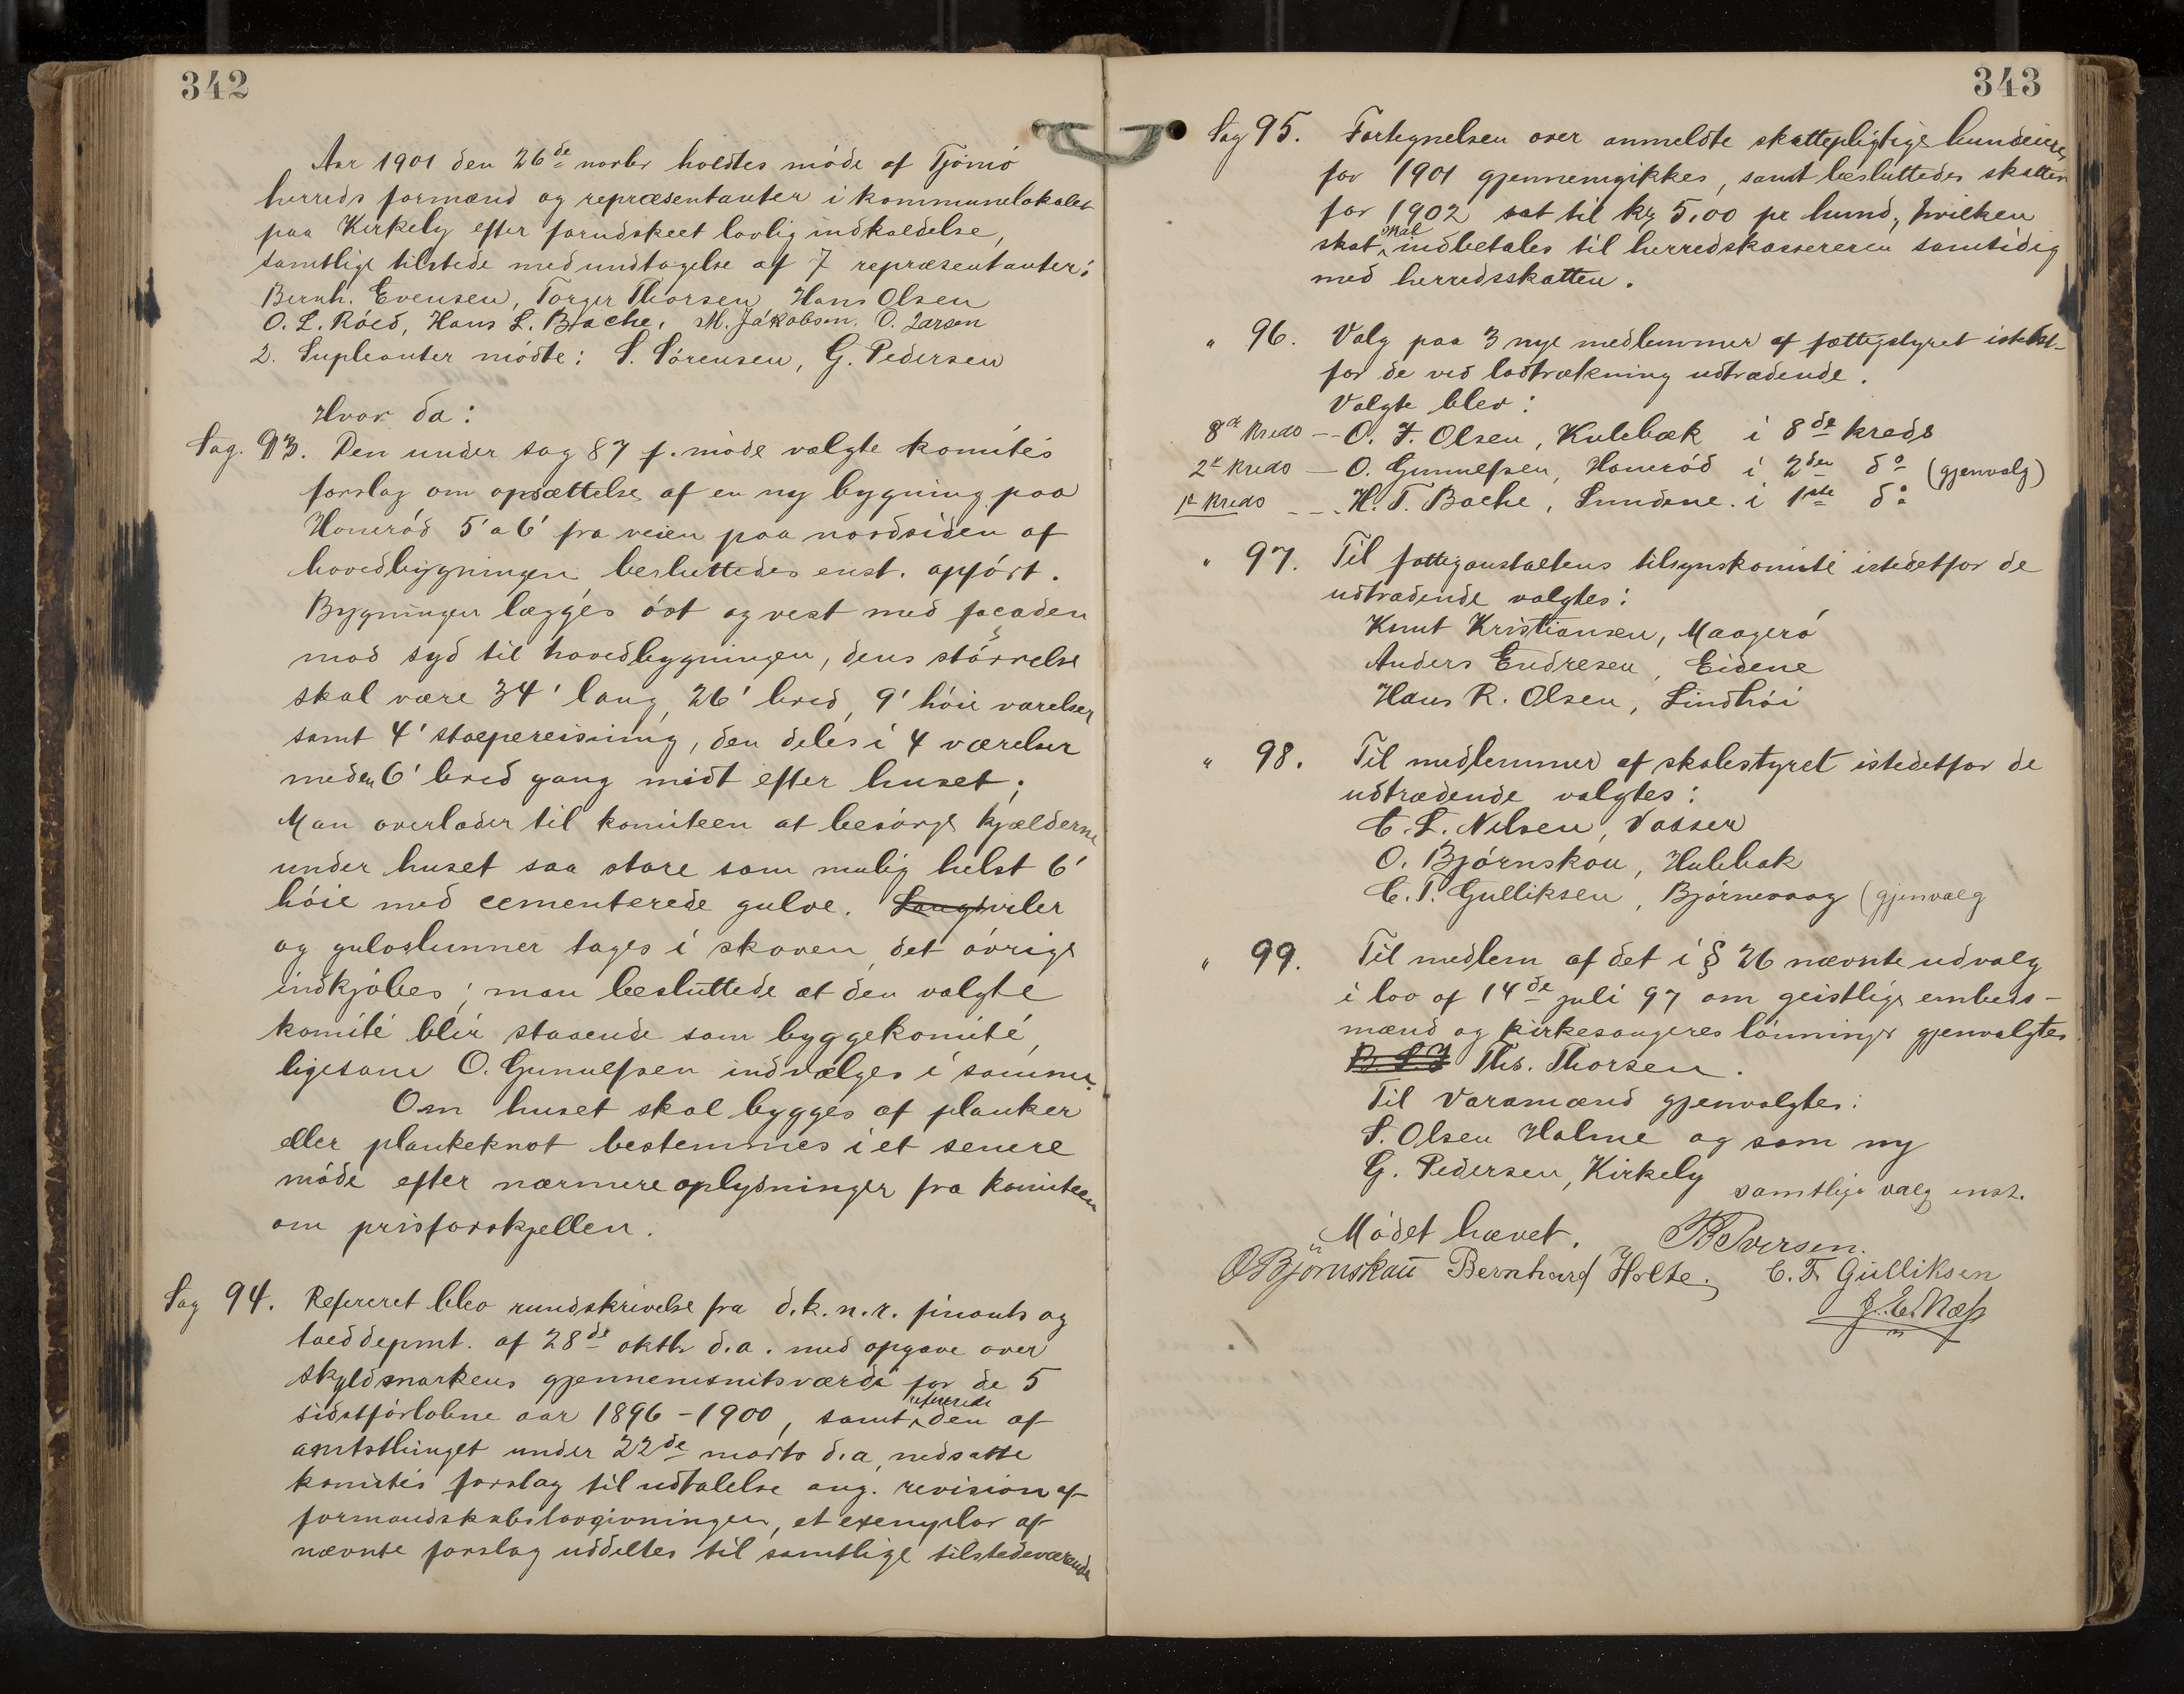 342
Aar 1901 den 26de novbr holdtes møde af Tjømø
herreds formænd og repræsentanter i kommunelokalet
paa Kirkely efter forudskeet lovlig indkaldelse,
samtlige tilstede med undtagelse af 7 repræsentanter:
Bernh. Evensen, Torger Thorsen, Hans Olsen
O. L. Røed, Hans L. Bache, M. Jakobsen, O. Larsen
2. Supleanter mødte: S. Sørensen, G. Pedersen
Hvor da:
Sag. 93. Den under sag 87 f. møde valgte komités
forslag om opsættelse af en ny bygning paa
Honerød 5' a 6' fra veien paa nordsiden af
hovedbygningen besluttedes enst. opført.
Bygningen lægges øst og vest med facaden
mod syd til hovedbygningen, dens størrelse
skal være 34' lang, 26' bred, 9' høie værelser
samt 4' stolpereisning, den deles i 4 værelser
med en 6' bred gang midt efter huset;
Man overlader til komiteen at besørge kjælderne
under huset saa store som mulig helst 6'
høie med cementerede gulve. Langsviler
og gulvslunner tages i skoven, det øvrige
indkjøbes; man besluttede at den valgte
komité blir staaende som byggekomité,
ligesom O. Gunnelsen indvælges i samme.
Om huset skal bygges af planker
eller plankeknot bestemmes i et senere
møde efter nærmere oplysninger fra komiteen
om prisforskjellen.
Sag 94. Refereret blev rundskrivelse fra d. k. n. r. finants og
tolddepmt. af 28de oktbr d.a. med opgave over
skyldmarkens gjennemsnitsværdi for de 5
sidstforløbne aar 1896-1900, samt refererede den af
amtsthinget under 22de marts d.a, nedsatte
komités forslag til udtalelse ang. revision af
formandskabslovgivningen, et exemplar af
nævnte forslag uddeltes til samtlige tilstedeværende
343
Sag 95. Fortegnelsen over anmeldte skattepligtige hundeiere
for 1901 gjennemgikkes, samt besluttedes skatten
for 1902 sat til kr 5,00 pr hund, hvilken
skat skal indbetales til herredskassereren samtidig
med herredsskatten.
" 96. Valg paa 3 nye medlemmer af fattigstyret istedet-
for de ved lodtrækning udtrædende.
Valgte blev:
8de kreds -- O. F. Olsen, Kulebæk i 8de kreds
2den kreds — O. Gunnelsen, Honerød i 2den do (gjenvalg)
1ste kreds --- H. T. Bache, Sundene. i 1ste do
" 97. Til fattiganstaltens tilsynskomité istedetfor de
udtrædende valgtes:
Knut Kristiansen, Maagerø
Anders Endresen, Eidene
Hans R. Olsen, Lindhøi
" 98. Til medlemmer af skolestyret istedetfor de
udtrædende valgtes:
C. L. Nilsen, Vasser
O. Bjørnskau, Hulebak
C. T. Gulliksen, Bjørnevaag (gjenvalg
" 99. Til medlem af det i § 26 nævnte udvalg
i lov af 14de juli 97 om geistlige embeds-
mænd og kirkesangeres lønninger gjenvalgtes
Ths. Thorsen.
Til Varamænd gjenvalgtes:
S. Olsen Holme og som ny
G. Pedersen, Kirkely samtlige valg enst.
Mødet hævet.
O Bjørnskau Bernhard Holte. C. T. Gulliksen
J. C. Næss